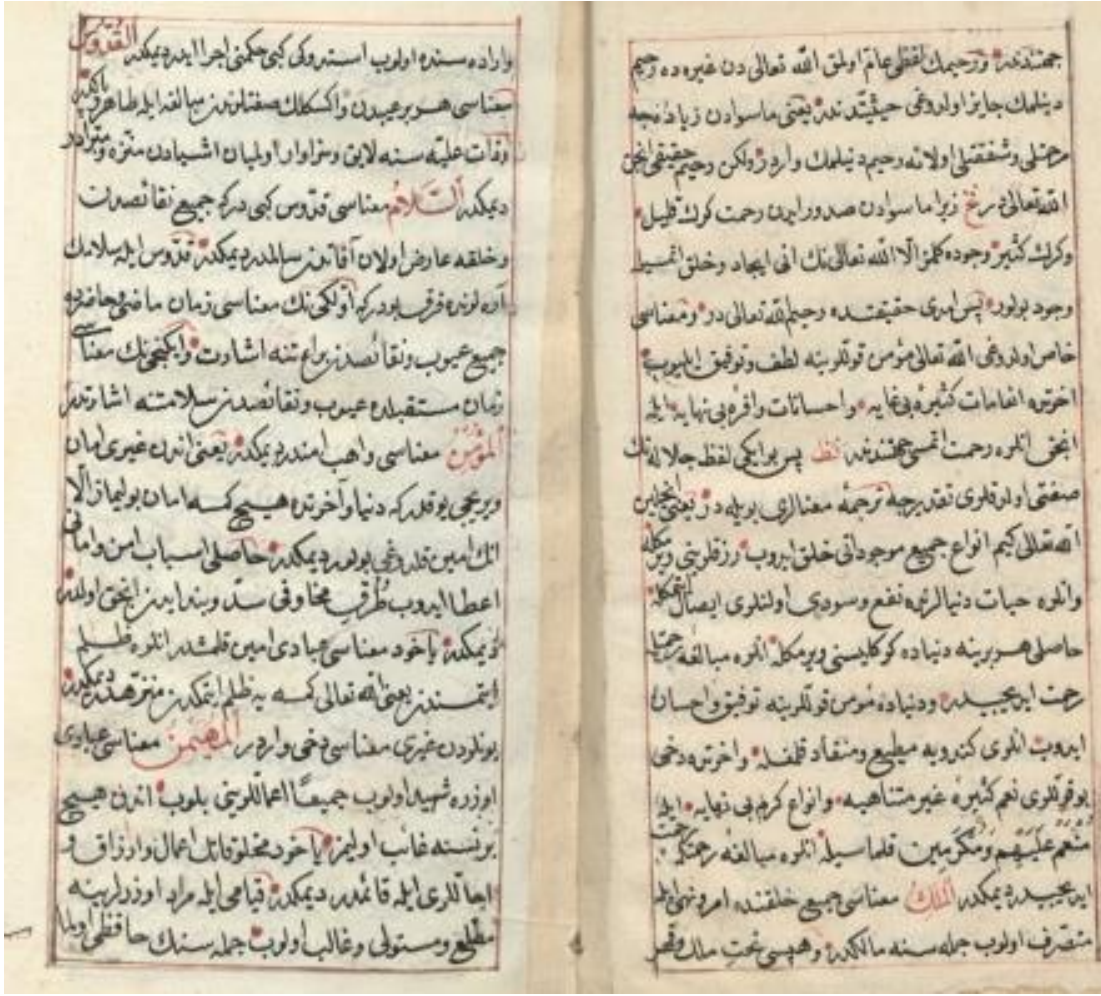 جهتندندر ورحيمك لفظى عام اولمق الله تعالى دن غيره ده رحيم
دينلمك جايز اولدوغى حيثيتدندر يعنى ماسوادن زياده جه
رحمتلى وشفقتلى اولانه رحيم دينلمك واردر ولكن رحيم حقيقى انجق
الله تعالى در زيرا ماسوادن صدور ايدن رحمت كرك قليل
وكرك كثير وجوده كلمز الا الله تعالى نك انى ايجاد وخلق اتمسيله
وجود بولور پس امدى حقيقتده رحيم الله تعالى در ومعناسى
خاص اولدوغى الله تعالى مؤمن قوللرينه لطف وتوفيق ايليوب
اخرتده انعامات كثيرۀ بى غايه واحسانات وافرۀ بى نهايه ايله
انجق انلره رحمت اتمسى جهتندندر پس بو ايكى لفظ جلاله نك
صفتى اولدقلرى تقديرجه ترجمۀ معنالرى بويله در يعنى
الله تعالى كيم انواع جميع موجوداتى خلق ايدوب رزقلرينى ويرمكله
وانلره حيات دنيالرنده نفع وسودى اولنلرى ايصال اتمكله
حاصلى هر برينه دنياده كوكليسنى ويرمكله انلره مبالغه رحمتله
رحمت ايديجيدر ودنياده مؤمن قوللرينه توفيق واحسان
ايدوب انلرى كندويه مطيع ومنقاد قلمغله واخرتده دخى
بو قوللرى نعم كثيرۀ غير متناهيه وانواع كرم بى نهايه ايله
منعم عليهم ومكرمين قلماسيله انلره مبالغه رحمتله رحمت
ايديجيدر ديمكدر الملك معناسى جميع خلقنده امر ونهى ايله
متصرف اولوب جمله سنه مالكدر وهپسى تحت ملك وقهر
واراده سنده اولوب استدوكى كبى حكمنى اجرا ايدر ديمكدر القدوس
معناسى هر بر عيبدن واكسكلك صفتلرندن مبالغه ايله طاهر وپاكدر
وذات عليه سنه لايق وسزاوار اولميان اشيادن منزه ومبرادر
ديمكدر السلام معناسى قدوس كبى در كه جميع نقائصدن
وخلقه عارض اولان آفاتدن سالمدر ديمكدر قدوس ايله سلامك
آره لرنده فرق بودر كه اولكى نك معناسى زمان ماضى وحاضرده
جميع عيوب ونقائصدن برائتنه اشارت وايكنجى نك معناسى
زمان مستقبلده عيوب ونقائصدن سلامتنه اشارتدر
المؤمن معناسى واهب امندر ديمكدر يعنى اندن غيرى امان
ويريجى يوقدر كه دنيا وآخرتده هيچ كمسه امان بوليماز الا
انك امين قلدوغى بولور ديمكدر حاصلى اسباب امن وامانى
اعطا ايدوب طرق مخاوفى سد وبند ايدن انجق اولدر
ديمكدر ياخود معناسى عبادى امين قلمشدر انلره ظلم
ايتمسندن يعنى الله تعالى كمسه يه ظلم ايتمكدن منزهدر ديمكدر
بونلردن غيرى معناسى دخى واردر المهيمن معناسى عبادى
اوزره شهيد اولوب جميعاً اعماللرينى بلوب اندن هيچ
بر نسنه غائب اوليمز ياخود مخلوقاتك اعمال وارزاق و
اجاللرى ايله قائمدر ديمكدر قيامى ايله مراد اوزرلرينه
مطلع ومستولى وغالب اولوب جمله سنك حافظى اولما